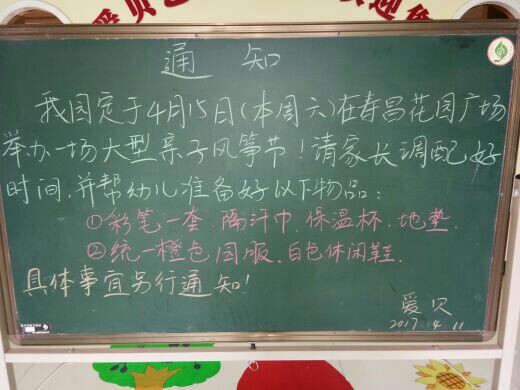 通 知
我园定于4月15日(本周六)在寿昌花园广场
举办一场大型亲子风筝节!请家长调配好
时间,并帮幼儿准备好以下物品:
①彩笔一套.隔汗巾.保温杯.地垫.
②统一橙色园服.白色休闲鞋.
具体事宜另行通知!
爱贝
2017.4.11